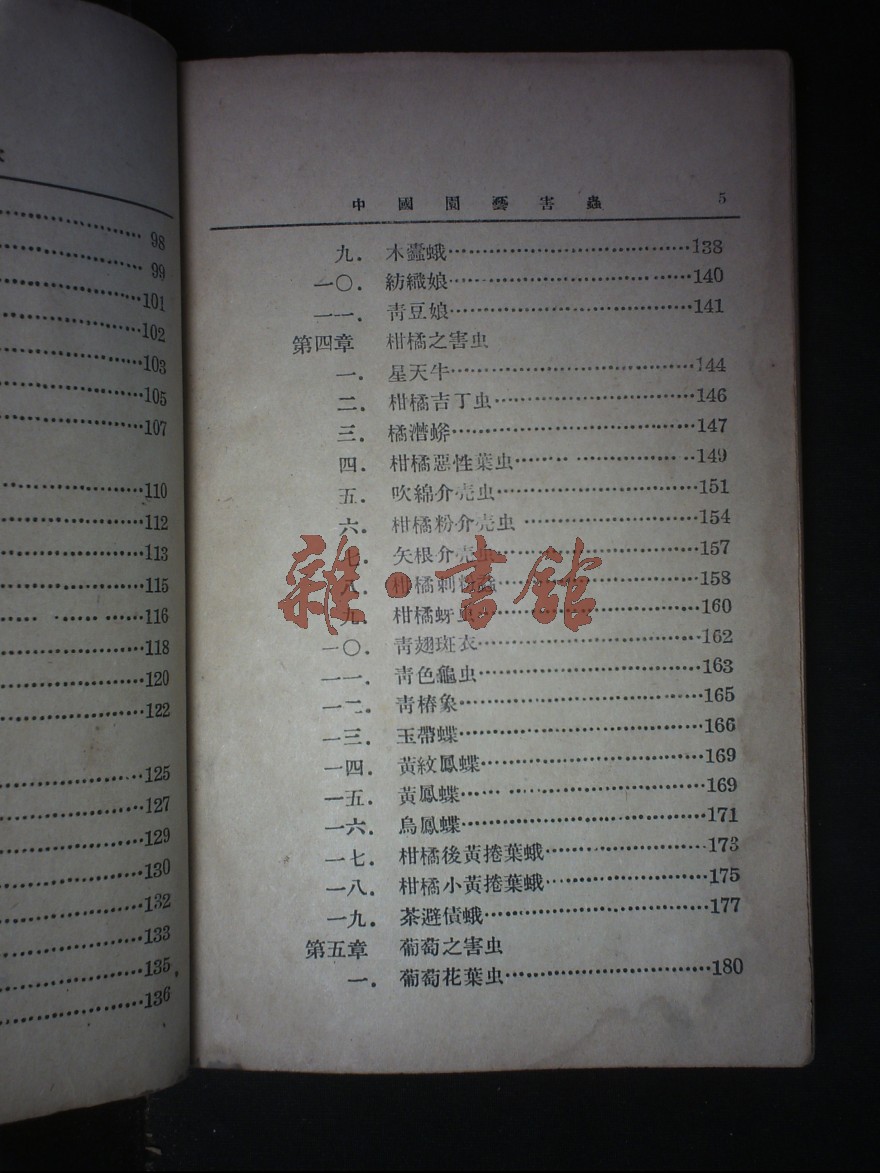 98
99
101
102
103
105
107
110
112
113
115
116
118
120
122
125
127
129
130
132
133
135
136
中國園藝害蟲 5
九． 木蠹蛾 138
一〇． 紡織娘 140
一一． 靑豆娘 141
第四章 柑橘之害虫
一． 星天牛 144
二． 柑橘吉丁虫 146
三． 橘潛蛴 147
四． 柑橘惡性葉虫 149
五． 吹綿介壳虫 151
六． 柑橘粉介壳虫 154
七． 矢根介壳虫 157
八． 柑橘刺粉蝨 158
九． 柑橘蚜虫 160
一〇． 靑翅斑衣 162
一一． 靑色龜虫 163
一二． 靑椿象 165
一三． 玉帶蝶 166
一四． 黃紋鳳蝶 169
一五． 黃鳳蝶 169
一六． 烏鳳蝶 171
一七． 柑橘後黃捲葉蛾 173
一八． 柑橘小黃捲葉蛾 175
一九． 茶避債蛾 177
第五章 葡萄之害虫
一． 葡萄花葉虫 180
雜·書館